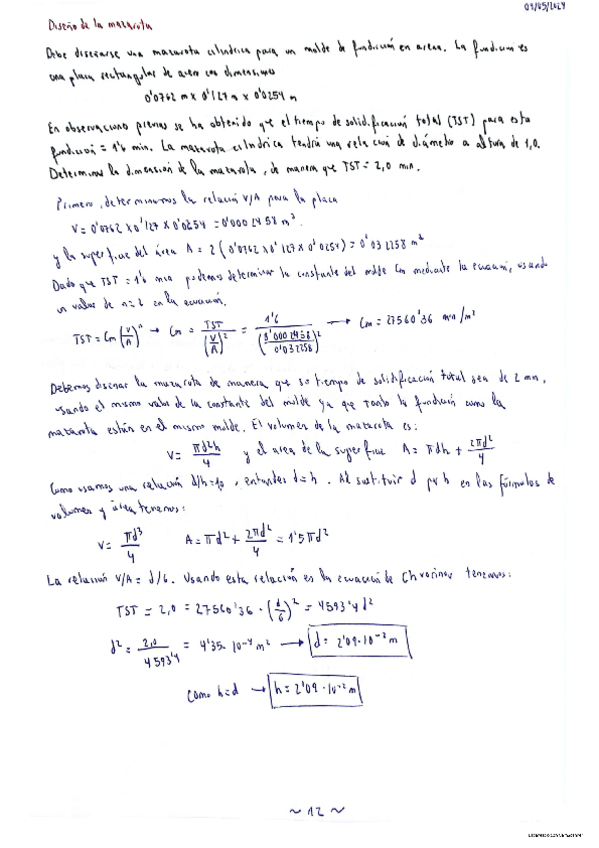 09/05/2024
Diseño de la mazarota
Debe diseñarse una mazarota cilíndrica para un molde de fundición en arena. La fundición es
una placa rectangular de acero con dimensiones
0'0762 m x 0'127 m x 0'0254 m
En observaciones previas se ha obtenido que el tiempo de solidificación total (TST) para esta
fundición = 1'6 min. La mazarota cilíndrica tendrá una relación de diámetro a altura de 1,0.
Determinar la dimensión de la mazarota, de manera que TST = 2,0 min.
Primero, determinamos la relación V/A para la placa
V = 0'0762 x 0'127 x 0'0254 = 0'0002458 m³
y la superficie del área A = 2 (0'0762 x 0'127 x 0'0254) = 0'032258 m²
Dado que TST = 1'6 min podemos determinar la constante del molde Cm mediante la ecuación, usando
un valor de n = 2 en la ecuación.
TST = Cm (V/A)ⁿ → Cm = TST/(V/A)² = 1'6/(0'0002458/0'032258)² → Cm = 27560'36 min/m²
Debemos diseñar la mazarota de manera que su tiempo de solidificación total sea de 2 min,
usando el mismo valor de la constante del molde ya que tanto la fundición como la
mazarota están en el mismo molde. El volumen de la mazarota es:
V = πd²h/4 y el area de la superficie A = πdh + 2πd²/4
Como usamos una relación d/h = 1,0, entonces d = h. Al sustituir d por h en las fórmulas de
volumen y área tenemos:
V = πd³/4 A = πd² + 2πd²/4 = 1'5πd²
La relación V/A = d/6. Usando esta relación en la ecuación de Chvorinov tenemos:
TST = 2,0 = 27560'36 · (d/6)² = 4593'4 d²
d² = 2,0/4593'4 = 4'35·10⁻⁴ m² → d = 2'09·10⁻² m
como h = d → h = 2'09·10⁻² m
~ 12 ~